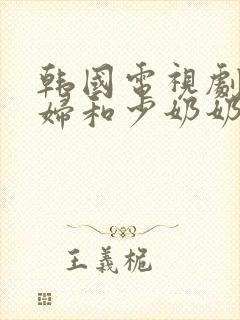 韩國電視劇
婦和少奶奶
王義桅